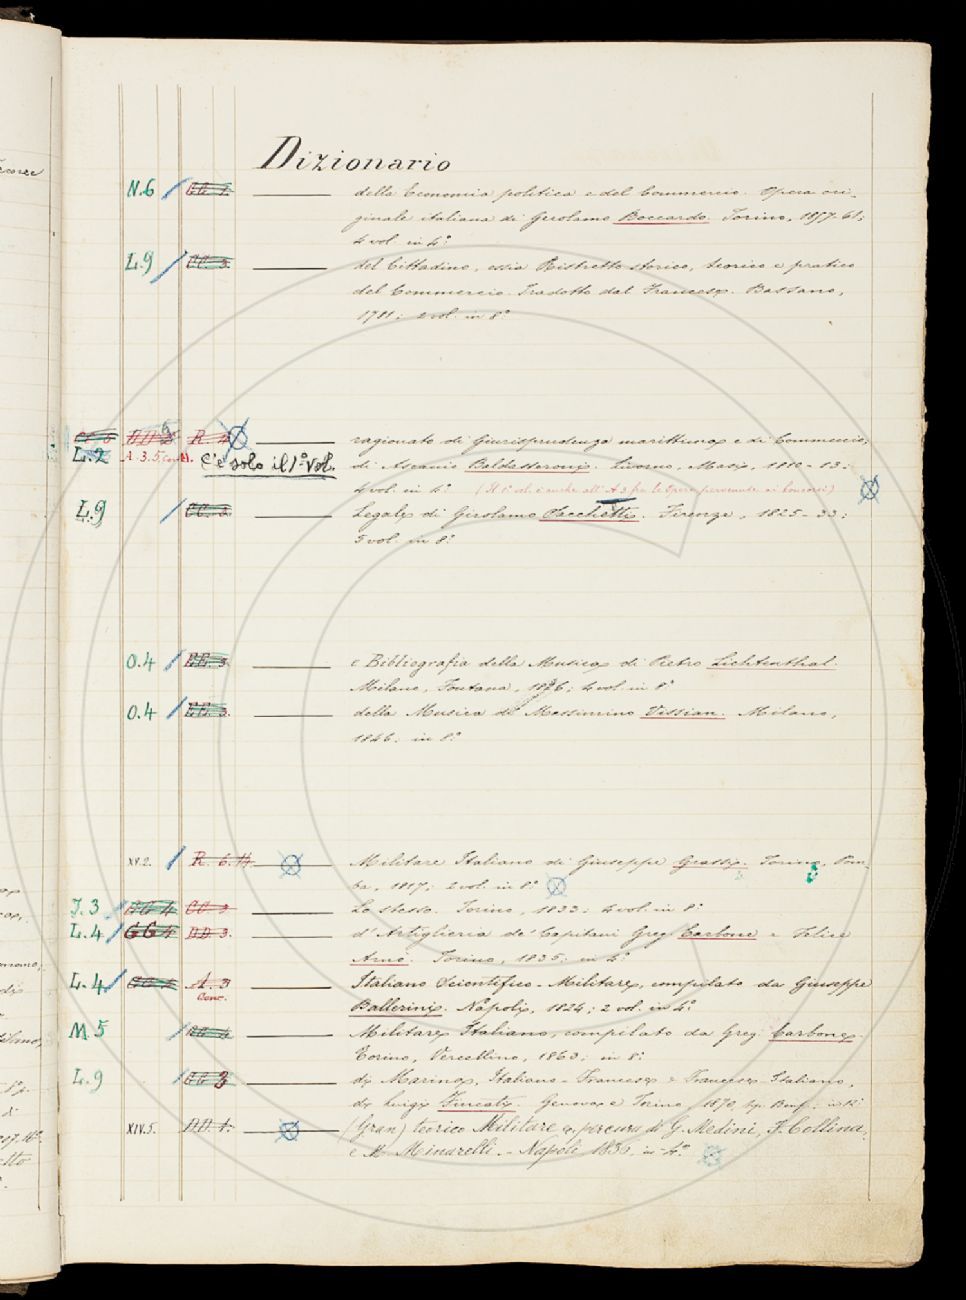 Dizionario
N.6 della Economia politica e del Commercio. Opera ori-
ginale italiana di Gerolamo Boccardo. Torino, 1857-61;
4 vol. in 4°
L.9 del Cittadino, ossia Ristretto storico, teorico e pratico
del Commercio. Tradotto dal Francese. Bassano,
1781; 2 vol. in 8°
R. 4 ragionato di Giurisprudenza marittima e di Commercio,
L.2 A. 3.5 C'è solo il 1° vol. di Ascanio Baldasseroni. Livorno, Masi, 1810-13;
4 vol. in 4° (Il 1° vol. è anche all' A 3 fra le Opere pervenute ai Concorsi)
L.9 CC. 3. Legale di Girolamo Sacchetti. Firenze, 1825-33;
5 vol. in 8°
O.4 EE. 3. e Bibliografia della Musica di Pietro Lichtenthal.
Milano, Fontana, 4 vol. in 8°
O.4 EE. 3. della Musica di Massimino Vissian. Milano,
1846. in 8°
XV.2. R. 6. Militare Italiano di Giuseppe Grassi. Torino, Pom-
ba, 1817; 2 vol. in 8°
J.3 GG 4 CC 3 Lo stesso. Torino, 1833: 4 vol. in 8°
L.4 GG 4 DD 3. d'Artiglieria de' Capitani Greg. Carbone e Felice
Arnò. Torino, 1835; in 4°
L.4 A. 3 Italiano Scientifico-Militare, compilato da Giuseppe
Conc. Ballerini. Napoli, 1824; 2 vol. in 4°
M 5 Militare Italiano, compilato da Greg. Carbone.
Torino, Vercellino, 1863; in 8°
L.9 di Marina, Italiano-Francese e Francese-Italiano,
di Luigi Fincati. Genova e Torino 1870, in 12°
XIV.5. DD. 4. (Gran) teorico Militare per cura di G. Medini, F. Collina,
e M. Minarelli. - Napoli 1836, in-4°